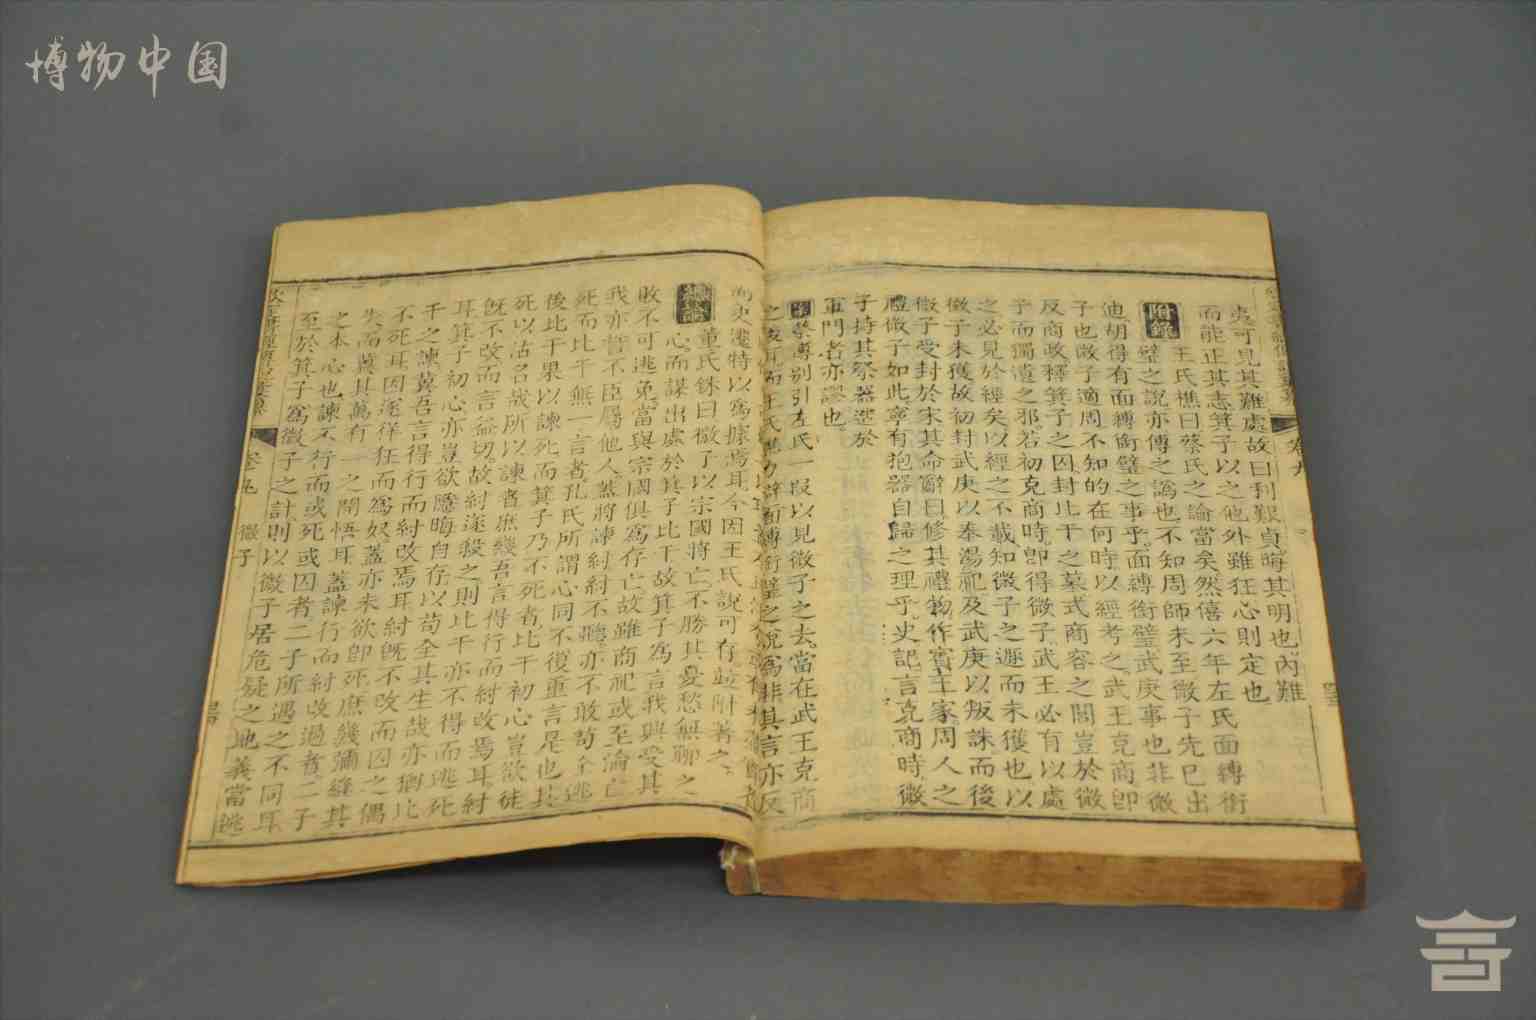 博物中国
夷可見其難處故曰利艱貞晦其明也內難
而能正其志箕子以之他外雖狂心則定也
附錄
王氏樵曰蔡氏之論當矣然僖六年左氏面縛銜
璧之說亦傳之譌也不知周師未至微子先已出
迪胡得有面縛銜璧之事乎面縛銜璧武庚事也非微
子也微子適周不知的在何時以經考之武王克商卽
反商政釋箕子之囚封比干之墓式商容之閭豈於微
子而獨遺之邪若初克商時卽得微子武王必有以處
之必見於經矣以經之不載知微子之遯而未獲也以
微子未獲故初封武庚以奉湯祀及武庚以叛誅而後
微子受封於宋其命辭曰修其禮物作賓王家周人之
禮微子如此寧有抱器自歸之理乎史記言克商時微
子持其祭器造於
軍門者亦謬也
蔡傳別引左氏一段以見微子之去當在武王克商
之後耳而王氏 力辯面縛銜璧之說爲非其言亦反
史遷特以爲據焉耳今因王氏說可存並附著之
總論
董氏銖曰微子以宗國將亡不勝其憂愁無聊之
心而謀出處於箕子比干故箕子爲言我與受其
敗不可逃免當與宗國俱爲存亡故雖商祀或至淪亡
我亦誓不臣屬他人蓋將諫紂紂不聽亦不敢苟全逃
死而比干無一言者孔氏所謂心同不復重言是也其
後比干果以諫死而箕子乃不死者比干初心豈欲徒
死以沽名哉所以諫者庶幾吾言得行而紂改焉耳紂
旣不改而言益切故紂遂殺之則比干亦不得而逃死
耳箕子初心亦豈欲隱晦自存以苟全其生哉亦猶比
干之諫冀吾言得行而紂改焉耳紂旣不改而囚之偶
不死耳因遂徉狂而爲奴蓋亦未欲卽死庶幾彌縫其
失而冀其萬有一之開悟耳蓋諫行而紂改過者二子
之本心也諫不行而或死或囚者二子所遇之不同耳
至於箕子爲微子之計則以微子居危疑之地義當逃
卷九
微子
卷九